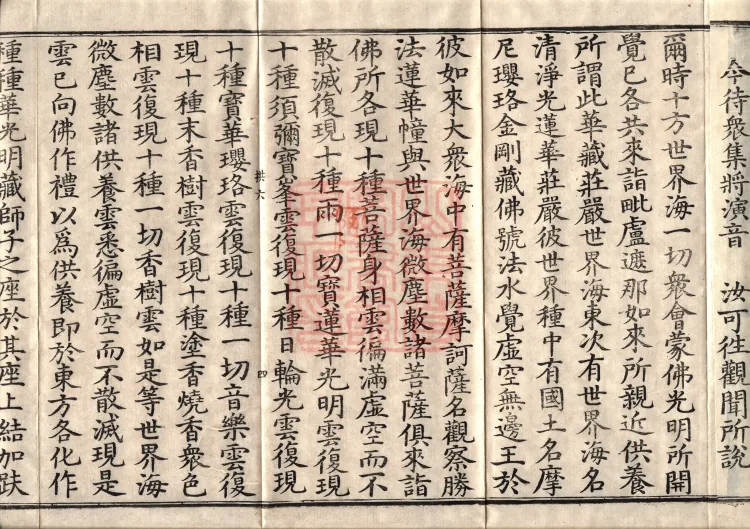 今待衆集將演音　汝可往觀聞所説
爾時十方世界海一切衆會蒙佛光明所開
覺已各共來詣毗盧遮那如來所親近供養
所謂此華藏莊嚴世界海東次有世界海名
清淨光蓮華莊嚴彼世界種中有國土名摩
尼瓔珞金剛藏佛號法水覺虛空無邊王於
彼如來大衆海中有菩薩摩訶薩名觀察勝
法蓮華幢與世界海微塵數諸菩薩俱來詣
佛所各現十種菩薩身相雲徧滿虛空而不
散滅復現十種雨一切寶蓮華光明雲復現
十種須彌寶峯雲復現十種日輪光雲復現
拱六
四
十種寶華瓔珞雲復現十種一切音樂雲復
現十種末香樹雲復現十種塗香燒香衆色
相雲復現十種一切香樹雲如是等世界海
微塵數諸供養雲悉徧虛空而不散滅現是
雲已向佛作禮以爲供養即於東方各化作
種種華光明藏師子之座於其座上結加趺